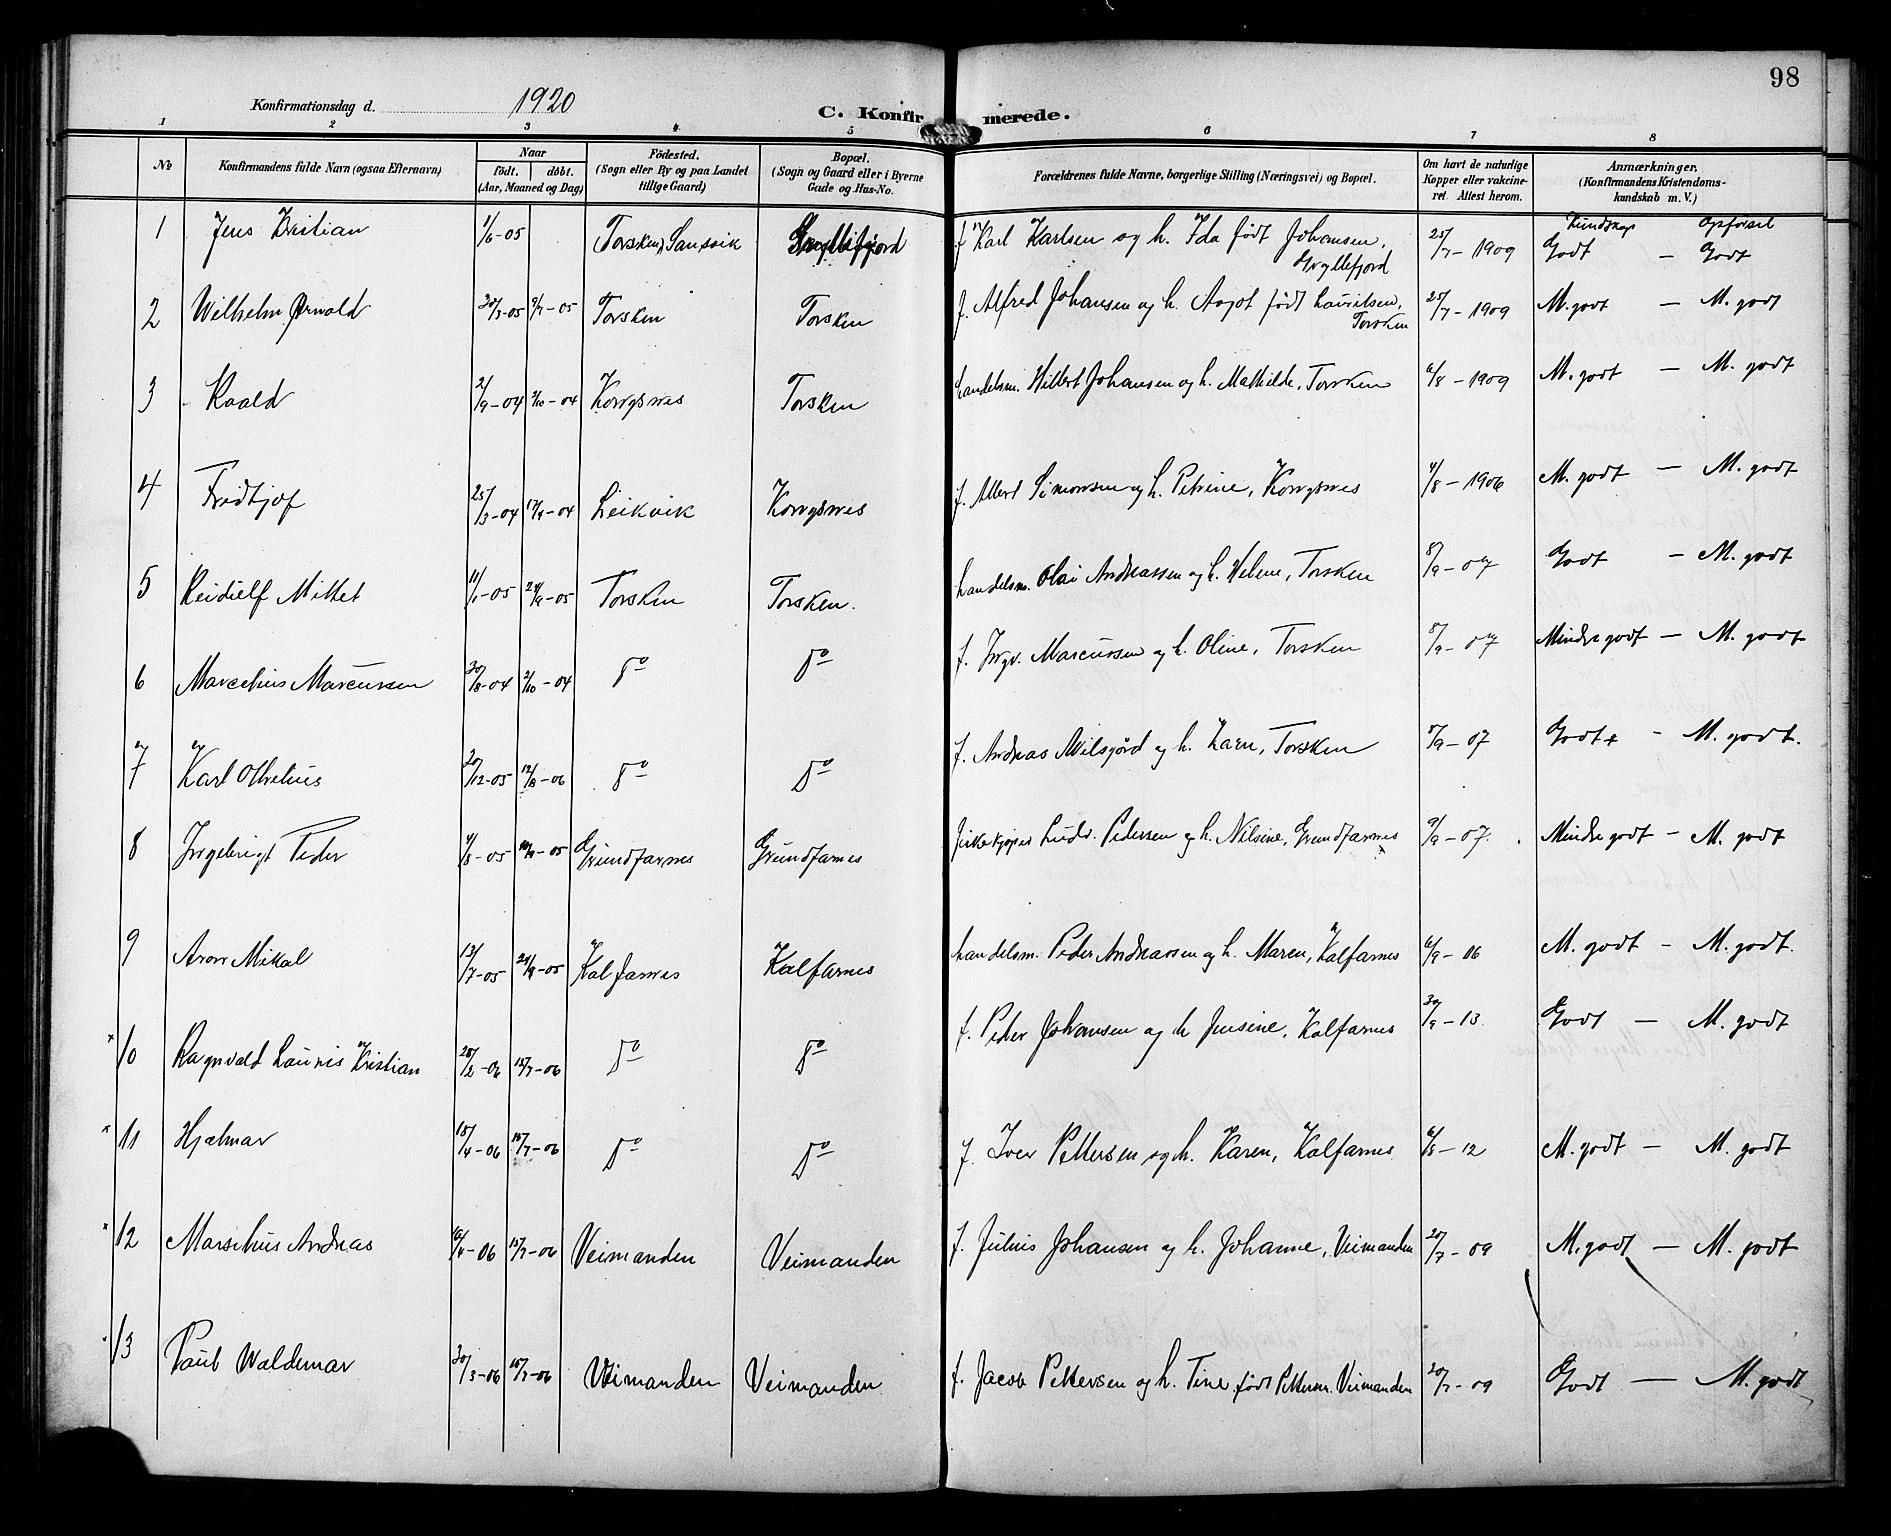 98
Konfirmationsdag d. 1920
C. Konfirmerede.
1 2 3 4 5 6 7 8
No
Konfirmandens fulde Navn (ogsaa Efternavn)
Naar
födt. döbt.
(Aar, Maaned og Dag)
Födested.
(Sogn eller By og paa Landet
tillige Gaard)
Bopæl.
(Sogn og Gaard eller i Byerne
Gade og Hus-No.
Forældrenes fulde Navne, borgerlige Stilling (Næringsvei) og Bopæl.
Om havt de naturlige
Kopper eller vakcine-
ret. Attest herom.
Anmærkninger.
(Konfirmandens Kristendoms-
kundskab m. V.)
Kundskap Opførsel
1 Jens Kristian 1/6-05 Torsken, Sansvik Gryllefjord f. Karl Karlsen og h. Ida født Johansen, 25/7-1909 Godt — Godt
Gryllefjord
2 Wilhelm Arnold 30/3-05 9/7-05 Torsken Torsken f. Alfred Johansen og h. Aagot født Lauritsen, 25/7-1909 M. godt — M. godt
Torsken
3 Roald 2/9-04 2/10-04 Kongsnes Torsken handelsm. Hilbert Johansen og h. Mathilde, Torsken 6/8-1909 M. godt — M. godt
4 Fridtjof 25/3-04 17/9-04 Leikvik Kongsnes f. Albert Simonsen og h. Petrine, Kongsnes 4/8-1906 M. godt — M. godt
5 Reidulf Mikkel 11/1-05 24/9-05 Torsken Torsken. handelsm. Olai Andreassen og h. Helene, Torsken 8/9-07 Godt — M. godt
6 Marcelius Marcussen 30/8-04 2/10-04 Do Do f. Ingv. Marcussen og h. Oline, Torsken 8/9-07 Mindre godt — M. godt
7 Karl Othelius 20/12-05 12/8-06 Do Do f. Andreas Nilsgård og h. Karn, Torsken 8/9-07 Godt - M. godt.
8 Ingebrigt Peder 4/8-05 10/9-05 Grundfarnes Grundfarnes Ludv. Pedersen og h. Nilsine, Grundfarnes 9/9-07. Mindre godt — M. godt
9 Aron Mikal 13/7-05 24/9-05 Kalfarnes Kalfarnes handelsm. Peder Andreassen og h. Maren, Kalfarnes 6/9-06 M. godt — M. godt.
x 10 Ragnvald Laurits Kristian 28/2-06 15/7-06 Do Do f. Peder Johansen og h. Jensine, Kalfarnes 30/9-13 Godt — M. godt
x 11 Hjalmar 18/4-06 15/7-06 Do Do f. Iver Pettersen og h. Karen, Kalfarnes 6/8-12 M. godt — M. godt
x 12 Marselius Andreas 10/4-06 15/7-06 Veimanden Veimanden f. Julius Johansen og h. Johanne, Veimanden 20/7-09 M. godt — M. godt
13 Paul Waldemar 30/3-06 15/7-06 Veimanden Veimanden f. Jacob Pettersen og h. Tine født Pettersen. Veimanden 20/7-09 Godt — M. godt